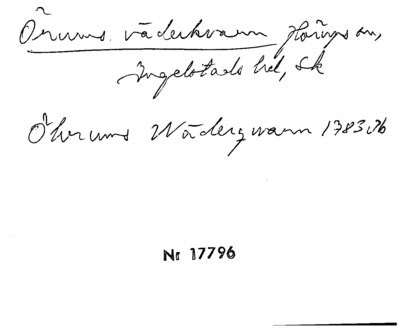 Örums väderkvarn Horups sn,
Ingelstads hd, Sk
Öhrums Wäderqwarn 1783 Jb
Nr 17796